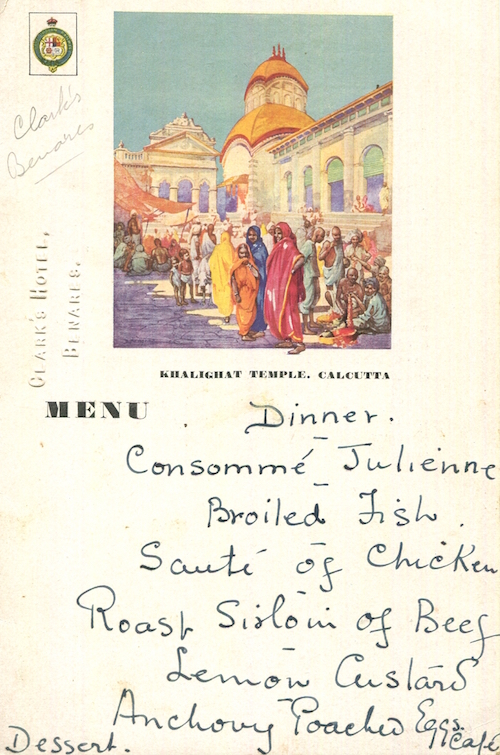 Clark's
Benares
CLARK'S HOTEL,
BENARES.
KHALIGHAT TEMPLE, CALCUTTA
MENU
Dinner.
Consommé Julienne
Broiled Fish.
Sauté of Chicken
Roast Sirloin of Beef
Lemon Custard
Anchovy Poached Eggs.
Dessert. Café